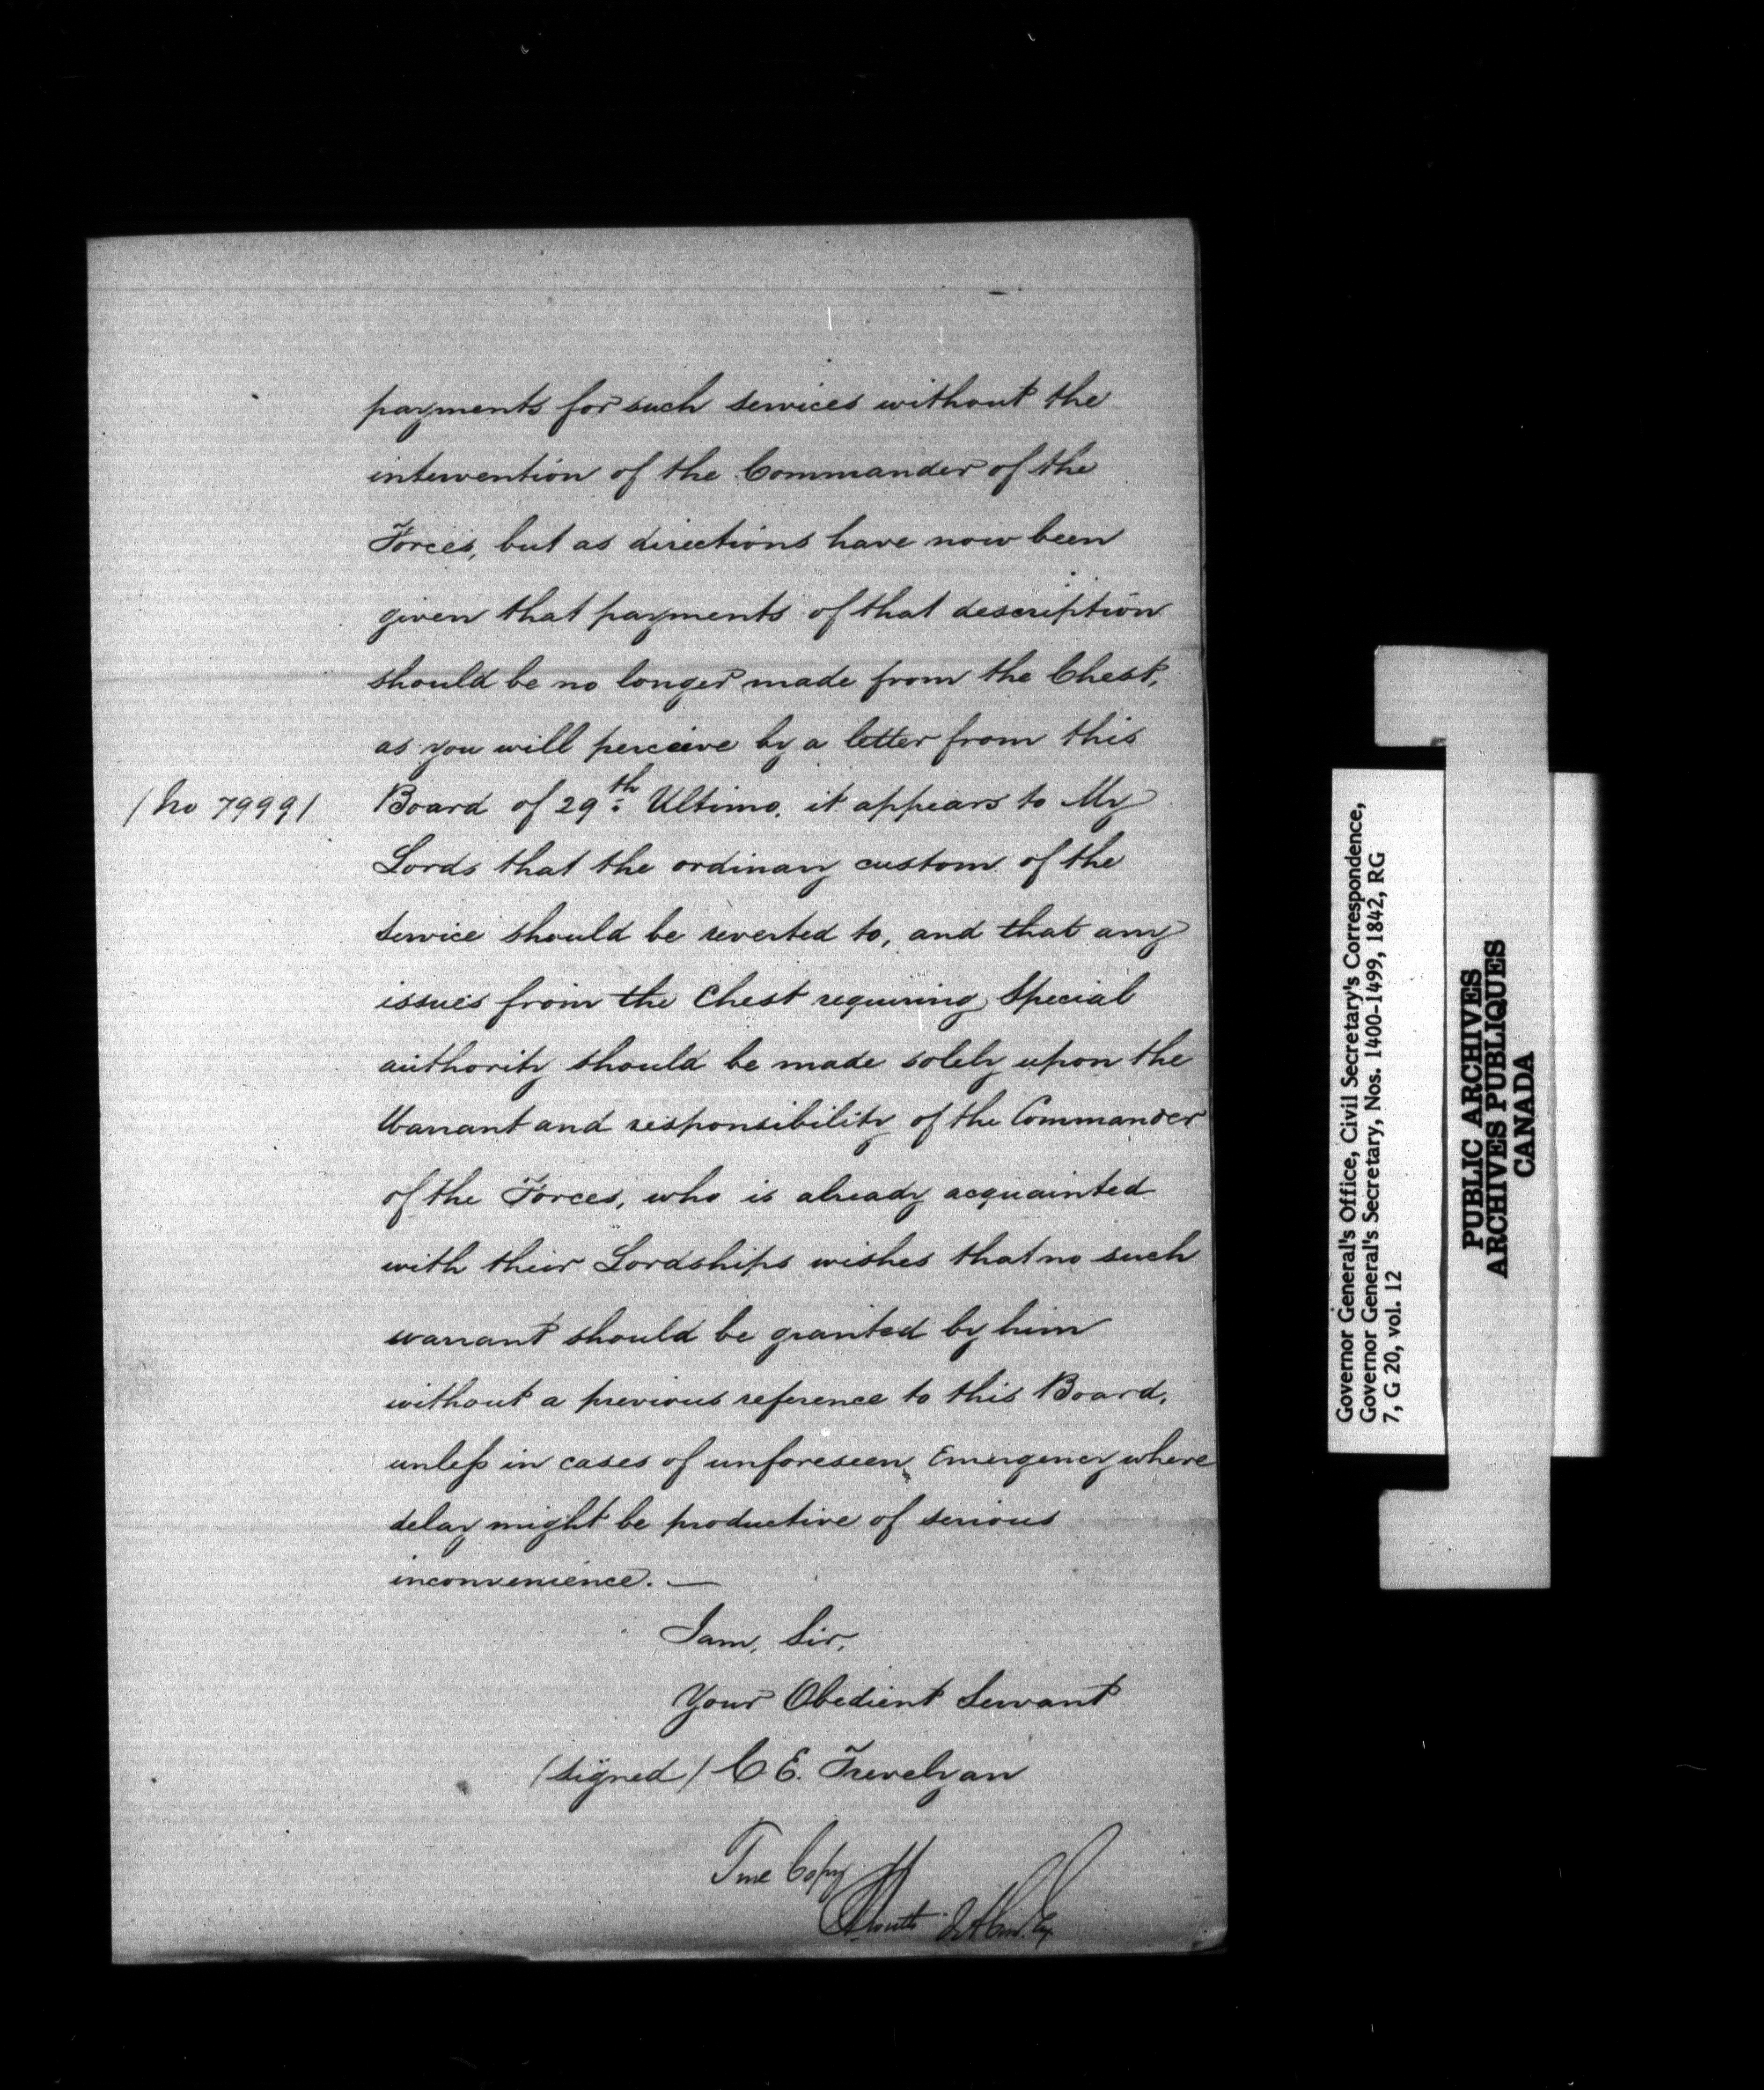 payments for such services without the
intervention of the Commander of the
Forces, but as directions have now been
given that payments of that description
should be no longer made from the Chest,
as you will perceive by a letter from this
/ No 7999 /
Board of 29th Ultimo. it appears to My
Lords that the ordinary custom of the
service should be reverted to, and that any
issues from the Chest requiring Special
authority should be made solely upon the
Warrant and responsibility of the Commander
of the Forces, who is already acquainted
with their Lordships wishes that no such
warrant should be granted by him
without a previous reference to this Board,
unless in cases of unforeseen Emergency where
delay might be productive of serious
inconvenience. —
I am, Sir,
Your Obedient Servant
/signed/ C E. Trevelyan
True Copy
Governor General's Office, Civil Secretary's Correspondence,
Governor General's Secretary, Nos. 1400-1499, 1842, RG
7, G 20, vol. 12
PUBLIC ARCHIVES
ARCHIVES PUBLIQUES
CANADA